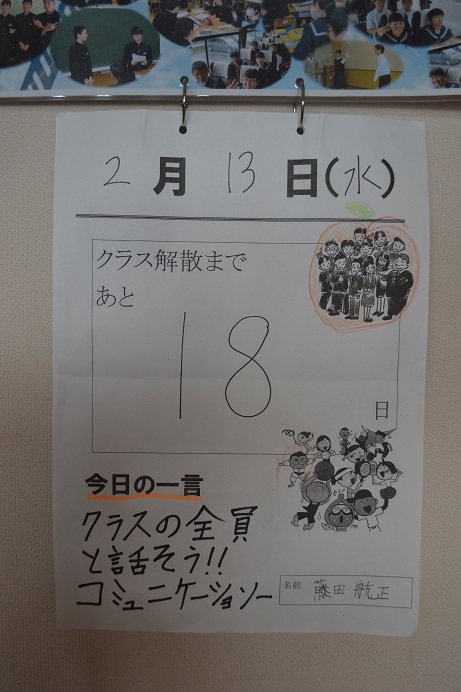 2月13日(水)
クラス解散まで
あと
18
日
今日の一言
クラスの全員
と話そう!!
コミュニケーショソー
名前 藤田 航正